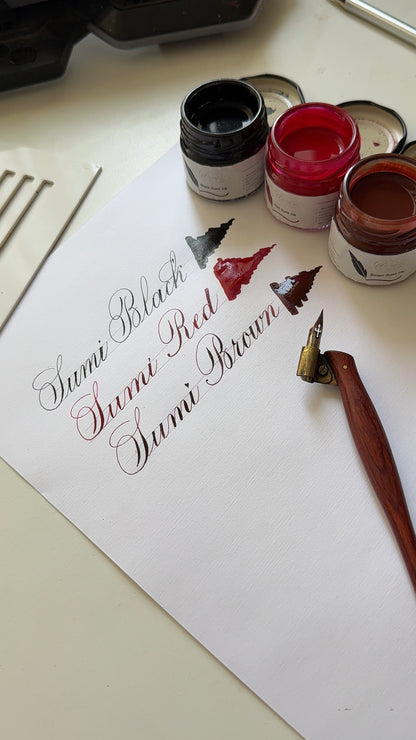 Sumi Black
Sumi Red
Sumi Brown